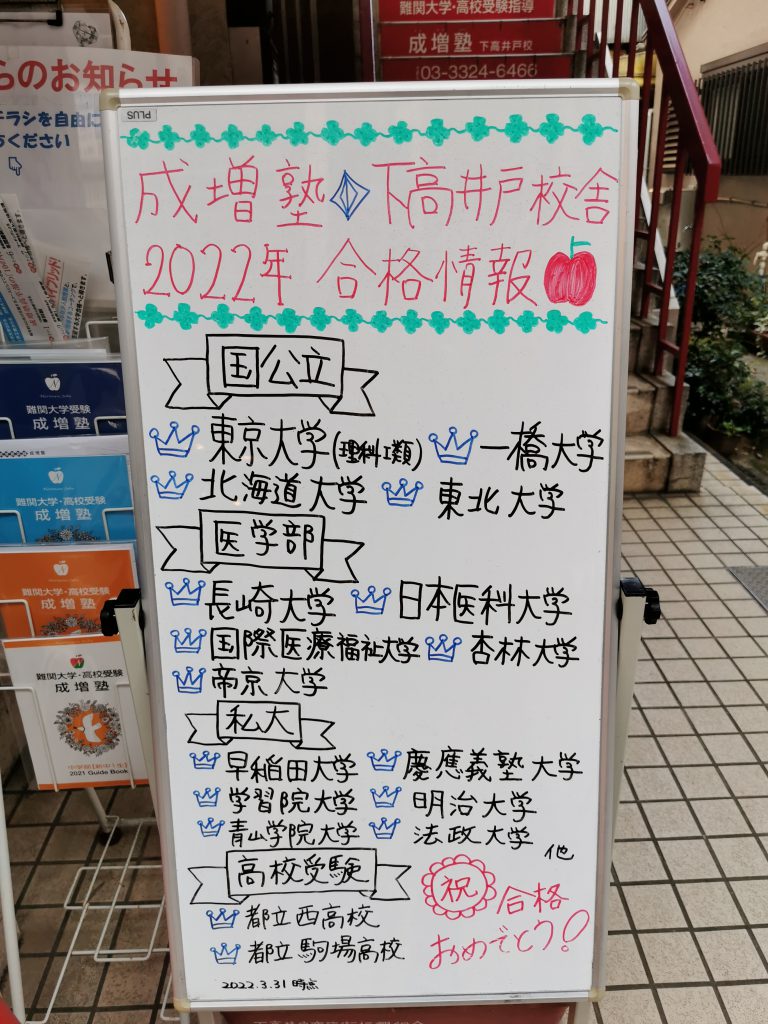 難関大学・高校受験指導
成増塾 下高井戸校
03-3324-6466
らのお知らせ
チラシを自由に
ください
PLUS
成増塾 下高井戸校舎
2022年 合格情報
国公立
東京大学(理科I類) 一橋大学
北海道大学 東北大学
医学部
長崎大学 日本医科大学
国際医療福祉大学 杏林大学
帝京大学
私大
早稲田大学 慶應義塾大学
学習院大学 明治大学
青山学院大学 法政大学
他
高校受験
都立西高校
都立駒場高校
祝 合格
おめでとう!
2022.3.31時点
難関大学受験
成増塾
難関大学・高校受験
成増塾
難関大学・高校受験
成増塾
難関大学・高校受験
成増塾
2021 Guide Book